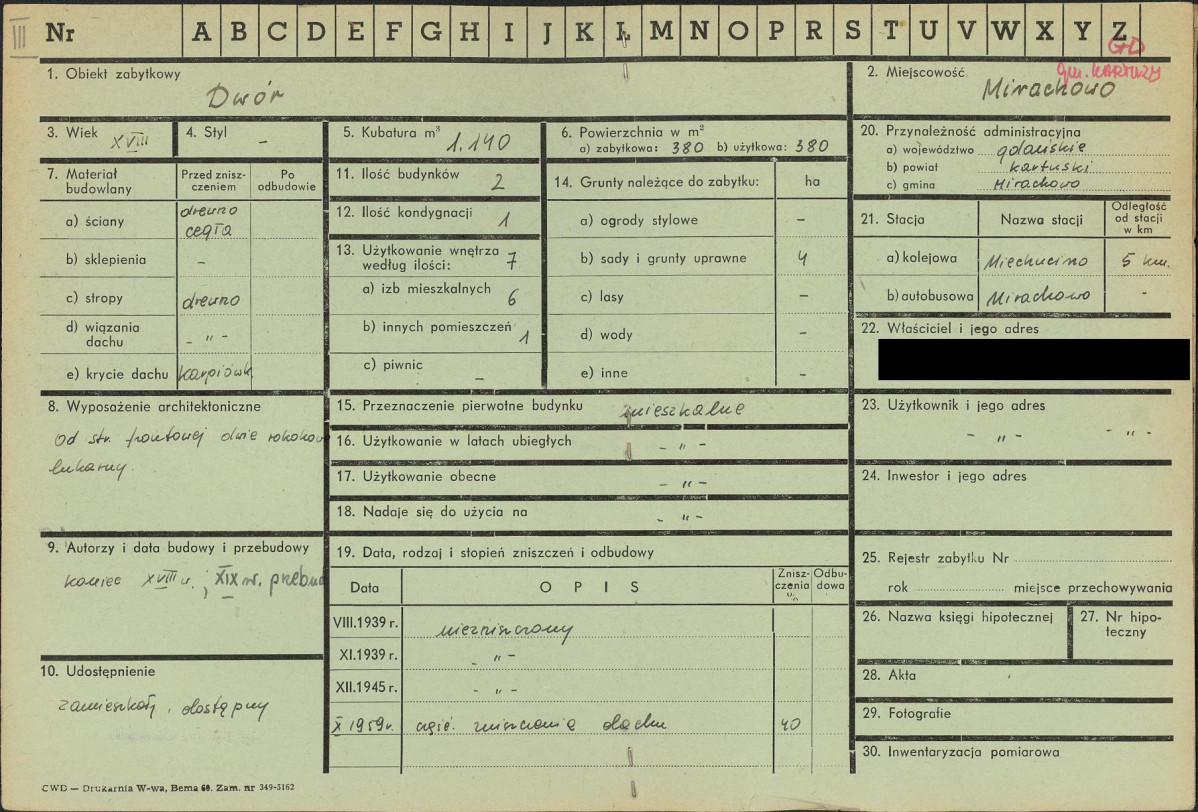 III
Nr A B C D E F G H I J K Ł M N O P R S T U V W X Y Z
GD
gm. KARTUZY
1. Obiekt zabytkowy
Dwór
2. Miejscowość
Mirachowo
3. Wiek XVIII
4. Styl -
5. Kubatura m³
1.140
6. Powierzchnia w m²
a) zabytkowa: 380 b) użytkowa: 380
20. Przynależność administracyjna
a) województwo gdańskie
b) powiat kartuski
c) gmina Mirachowo
7. Materiał budowlany
Przed zniszczeniem
Po odbudowie
a) ściany drewno
cegła
b) sklepienia -
c) stropy drewno
d) wiązania dachu - " -
e) krycie dachu karpiówk
11. Ilość budynków 2
12. Ilość kondygnacji 1
13. Użytkowanie wnętrza według ilości: 7
a) izb mieszkalnych 6
b) innych pomieszczeń 1
c) piwnic -
14. Grunty należące do zabytku: ha
a) ogrody stylowe -
b) sady i grunty uprawne 4
c) lasy -
d) wody -
e) inne -
21. Stacja Nazwa stacji Odległość od stacji w km
a) kolejowa Miechucino 5 km.
b) autobusowa Mirachowo -
22. Właściciel i jego adres
8. Wyposażenie architektoniczne
Od str. frontowej dwie rokokow
lukarny.
15. Przeznaczenie pierwotne budynku mieszkalne
16. Użytkowanie w latach ubiegłych - " -
17. Użytkowanie obecne - " -
18. Nadaje się do użycia na - " -
23. Użytkownik i jego adres
- " - - " -
24. Inwestor i jego adres
9. Autorzy i data budowy i przebudowy
koniec XVIII w.; XIX w. przebud
19. Data, rodzaj i stopień zniszczeń i odbudowy
Data OPIS Zniszczenia % Odbudowa
VIII.1939 r. niezniszczony
XI.1939 r. - " -
XII.1945 r. - " -
X 1959 r. część. zniszczenie dachu 40
25. Rejestr zabytku Nr
rok miejsce przechowywania
26. Nazwa księgi hipotecznej
27. Nr hipoteczny
10. Udostępnienie
zamieszkały, dostępny
28. Akta
29. Fotografie
30. Inwentaryzacja pomiarowa
CWD — Drukarnia W-wa, Bema 60. Zam. nr 349-5162